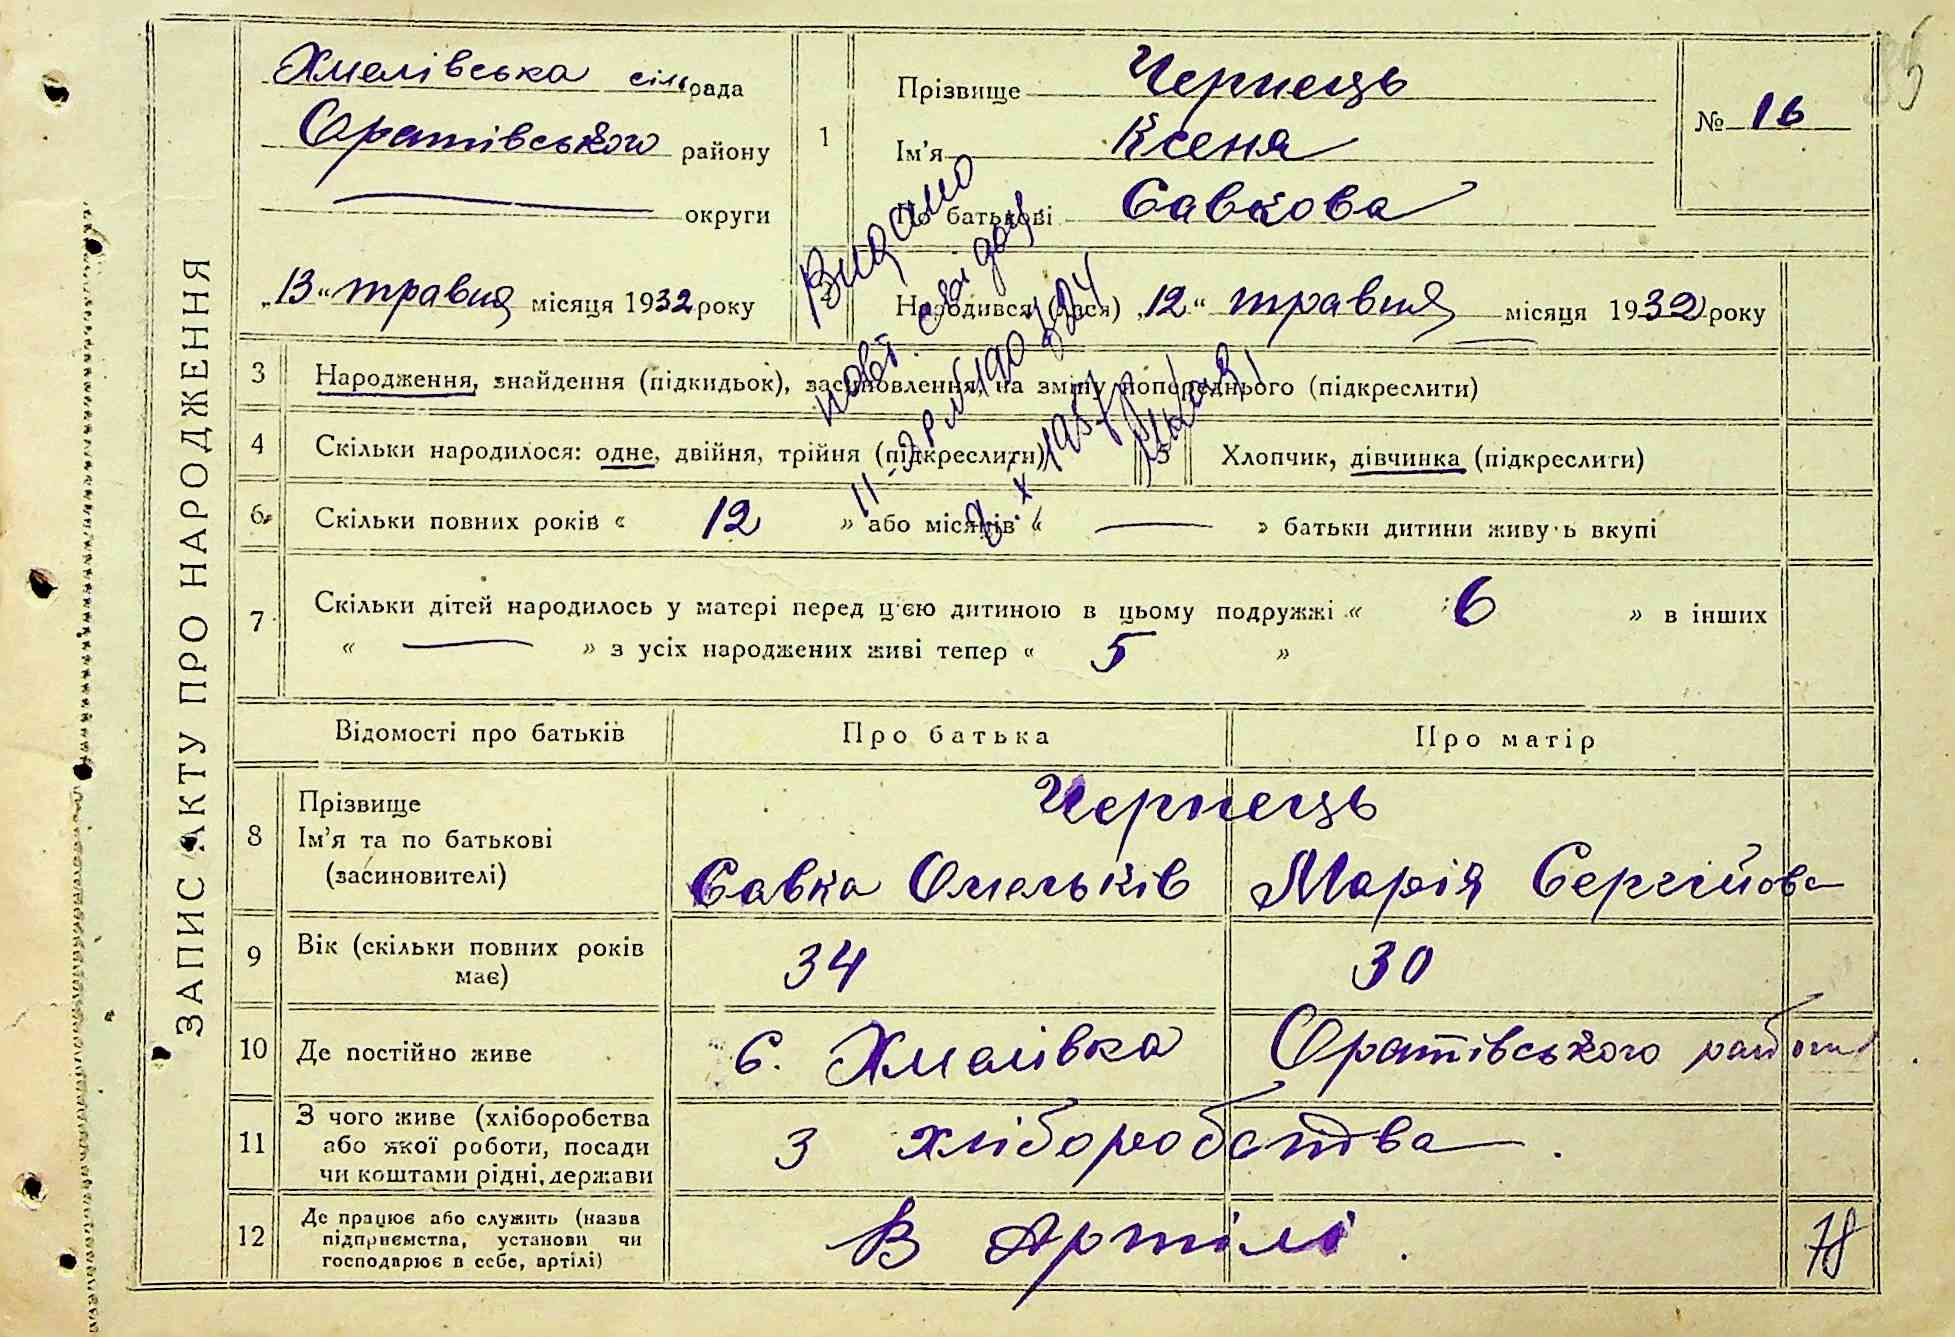 ЗАПИС АКТУ ПРО НАРОДЖЕННЯ
Хмелівська сільрада
Оратівського району
округи
„13“ травня місяця 1932 року
1
Прізвище Чернець
Ім'я Ксеня
По батькові Савкова
№ 16
Народився (лася) „12“ травня місяця 1932 року
Видано
повт. свідоц
3 Народження, знайдення (підкидьок), засиновлення, на зміну попереднього (підкреслити)
4 Скільки народилося: одне, двійня, трійня (підкреслити)
5 Хлопчик, дівчинка (підкреслити)
6 Скільки повних років « 12 » або місяців « — » батьки дитини живуь вкупі
7 Скільки дітей народилось у матері перед ц'єю дитиною в цьому подружжі « 6 » в інших
« — » з усіх народжених живі тепер « 5 »
Відомості про батьків Про батька Про матір
8 Прізвище
Ім'я та по батькові
(засиновителі)
Чернець
Савка Омельків Марія Сергійова
9 Вік (скільки повних років має) 34 30
10 Де постійно живе с. Хмелівка Оратівського району
11 З чого живе (хліборобства
або якої роботи, посади
чи коштами рідні, держави
З хліборобства.
12 Де працює або служить (назва
підприємства, установи чи
господарює в себе, артілі)
В Артілі.
78